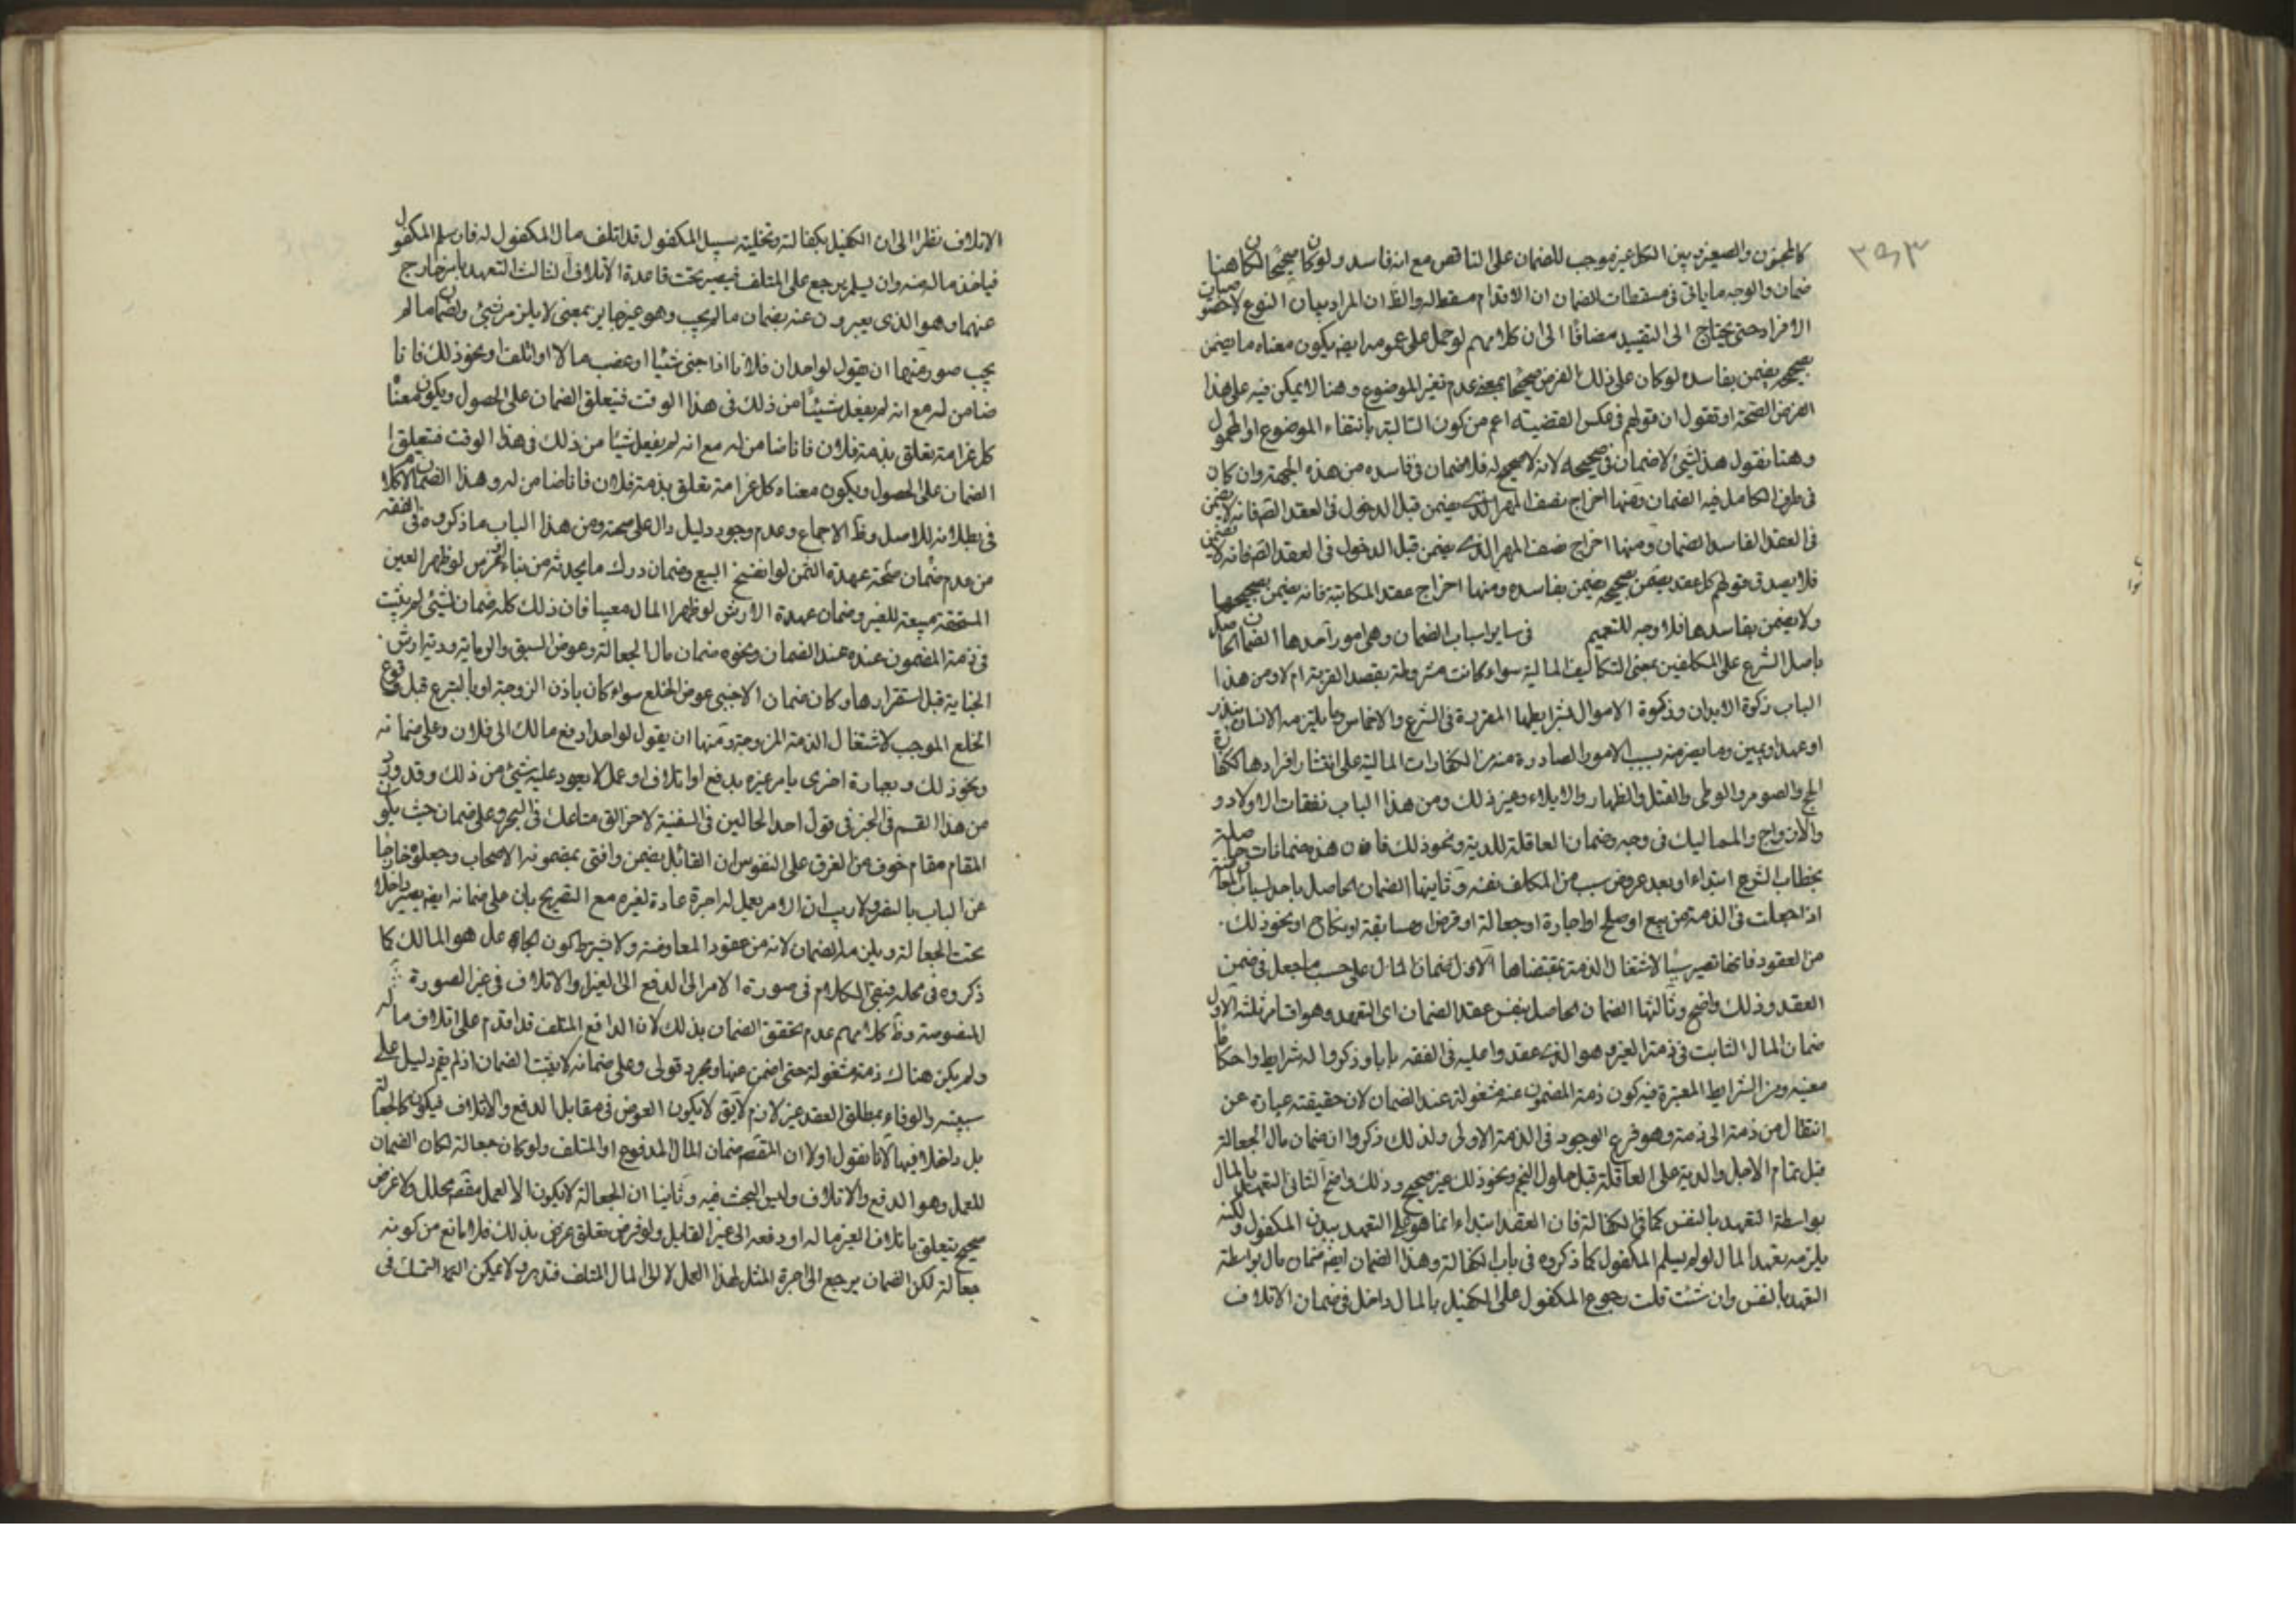 كالمجنون والصغيرة بين الكل غير موجب للضمان على الناقص مع انه فاسد ولو كان صحيحا لكان هنا
ضمان والوجه ما ياتى فى مسقطات الضمان ان الاقدام مسقط له والظ ان المراد بيان النوع لا خصوصيات
الافراد حتى يحتاج الى التقييد مضافا الى ان كلامهم لو حمل على عمومه ايضا يكون معناه ما يضمن
بصحيحه يضمن بفاسده لو كان على ذلك الفرض صحيحا بمعنى عدم تغير الموضوع وهنا لا يمكن فيه على هذا
الفرض الصحة او تقول ان قولهم فى عكس القضية اعم من كون السالبة بانتفاء الموضوع او المحمول
وهنا نقول هذا لشئ لا ضمان فى صحيحه لانه لا صحيح له فلا ضمان فى فاسده من هذه الجهة وان كان
فى طرف الكامل فيه الضمان ومنها اخراج نصف المهر الذى يضمن قبل الدخول فى العقد الصح فانه لا يضمن
فى العقد الفاسد الضمان ومنها اخراج نصف المهر الذى يضمن قبل الدخول فى العقد الصح فانه لا يضمن
فلا يصدق قولهم كل عقد يضمن بصحيحه يضمن بفاسده ومنها اخراج عقد المكاتبة فانه يضمن بصحيحها
ولا يضمن بفاسدها فلا وجه للتعميم فى ساير اسباب الضمان وهى امور احدها الضمان الحاصل
باصل الشرع على المكلفين بمعنى التكاليف المالية سواء كانت مشروطة بقصد القربة ام لا ومن هذا
الباب زكوة الابدان وزكوة الاموال بشرايطها المقررة فى الشرع والاخماس وما يلتزمه الانسان بنذر
او عهد او يمين وما يضمنه بسبب الامور الصادرة منه من الكفارات المالية على انتشار افرادها ككفارة
الحج والصوم والوطى والقتل والظهار والايلاء وغير ذلك ومن هذا الباب نفقات الاولاد و
والازواج والمماليك فى وجه وضمان العاقلة للدية ونحو ذلك فان هذه ضمانات حاصلة
بخطاب الشرع ابتداء او بعد عروض سبب من المكلف نفسه وثانيها الضمان الحاصل باحد اسباب المعاوضة
اذا جعلت فى الذمة من بيع او صلح او اجارة او جعالة او قرض او مسابقة او نكاح او نحو ذلك
من العقود فانها تصير سببا لاشتغال الذمة بمقتضاها الاول ضمان المال على حسب ما جعل فى ضمن
العقد وذلك واضح وثالثها الضمان الحاصل بنفس عقد الضمان اى التعهد وهو اقسام ثلثه الاول
ضمان المال الثابت فى ذمة الغير وهو الذى عقدوا عليه فى الفقه بابا وذكروا له شرايط واحكاما
معينه ومن الشرايط المعتبرة فيه كون ذمة المضمون عنه مشغولة عند الضمان لان حقيقته عبارة عن
انتقال من ذمة الى ذمة وهو فرع الوجود فى الذمة الاولى ولذلك ذكروا ان ضمان مال الجعالة
قبل تمام الاجل والدية على العاقلة قبل حلول النجم ونحو ذلك غير صحيح وذلك واضح الثانى التعهد بالمال
بواسطة التعهد بالنفس كما فى الكفالة فان العقد ابتداء انما هو على التعهد ببدن المكفول ولكنه
يلزمه تعهد المال لو لم يسلم المكفول كما ذكروه فى باب الكفالة وهذا الضمان ايضا ضمان مال بواسطة
التعهد بالنفس وان شئت قلت رجوع المكفول على الكفيل بالمال داخل فى ضمان الاتلاف
الاتلاف نظرا الى ان الكفيل بكفالته وتخليته سبيل المكفول قد اتلف مال المكفول له فان سلم المكفول
فياخذ ماله منه وان لم يسلم يرجع على المتلف فيصير تحت قاعدة الاتلاف الثالث التعهد بامر خارج
عنهما وهو الذى يعبرون عنه بضمان ما لم يجب وهو غير جايز بمعنى لا يلزم من شئ ولضمان ما لم
يجب صور منها ان يقول لواحد ان فلانا اذا جنى شئيا او غصب مالا او اتلف او نحو ذلك فانا
ضامن له مع انه لم يفعل شيئا من ذلك فى هذا الوقت فيتعلق الضمان على الحصول ويكون معناه
كل غرامة تعلق بذمة فلان فانا ضامن له مع انه لم يفعل شيئا من ذلك فى هذا الوقت فتعلق
الضمان على الحصول ويكون معناه كل غرامة تعلق بذمة فلان فانا ضامن له وهذا الضمان لا كلام
فى بطلانه للاصل وظ الاجماع وعدم وجود دليل دال على صحته ومن هذا الباب ما ذكروه فى الفقه
من عدم ضمان صحة عهدة الثمن لو انفسخ البيع وضمان درك ما يحدثه من بناء او غرس لو ظهر العين
المستحقة مبيعة للغير وضمان عهدة الارش لو ظهر المال معيبا فان ذلك كله ضمان لشئى لم يثبت
فى ذمة المضمون عنده عند الضمان ونحوه ضمان مال الجعالة وعوض السبق والرماية ودية او ارش
الجناية قبل استقرارها وكان ضمان الاجنبى عوض الخلع سواء كان باذن الزوجة او بالتبرع قبل وقوع
الخلع الموجب لاشتغال الذمة المزوجة ومنها ان يقول لواحد ادفع مالك الى فلان وعلى ضمانه
ونحو ذلك وبعبارة اخرى يامر غيره بدفع او اتلاف او عمل لا يعود عليه شئ من ذلك وقد ورد
من هذا القسم فى الخبر فى قول احد الحالين فى السفينة لاخر الق متاعك فى البحر وعلى ضمان حيث يكون
المقام مقام خوف من الغرق على النفوس ان القائل يضمن وافتى بمضمونه الاصحاب وجعلوه خارجا
عن الباب بالنص ولا ريب ان الامر بعمل له اجرة عادة لغيره مع التصريح بان على ضمانه ايضا يصير داخلا
تحت الجعالة ويلزمه الضمان لانه من عقود المعاوضة ولا يشترط كون الجاعل هو المالك كما
ذكروه فى محله فيبقى الكلام فى صورة الامر الى الدفع الى الغير او الاتلاف فى غير الصورة
المنصوصة وظ كلامهم عدم تحقق الضمان بذلك لان الدافع المتلف قد اقدم على اتلاف ماله
ولم يكن هناك ذمة مشغولة حتى اضمن عنها ومجرد قولى وعلى ضمانه لا يثبت الضمان اذ لم يقم دليل على
سببيته والوفاء بمطلق العقد غير لازم لا يق لا يكون العوض فى مقابل الدفع والاتلاف فيكون كالجعالة
بل داخلا فيها لانا نقول اولا ان المقصم ضمان المال المدفوع او المتلف ولو كان جعالة لكان الضمان
للعمل وهو الدفع والاتلاف وليس البحث فيه وثانيا ان الجعالة لا يكون الا لعمل مقصم محلل ولا غرض
صحيح يتعلق باتلاف الغير ماله او دفعه الى غير القايل ولو فرض تعلق غرض بذلك فلا مانع من كونه
جعالة لكن الضمان يرجع الى اجرة المثل لهذا العمل لا الى المال المتلف فتدبر ولا يمكن التمسك فى